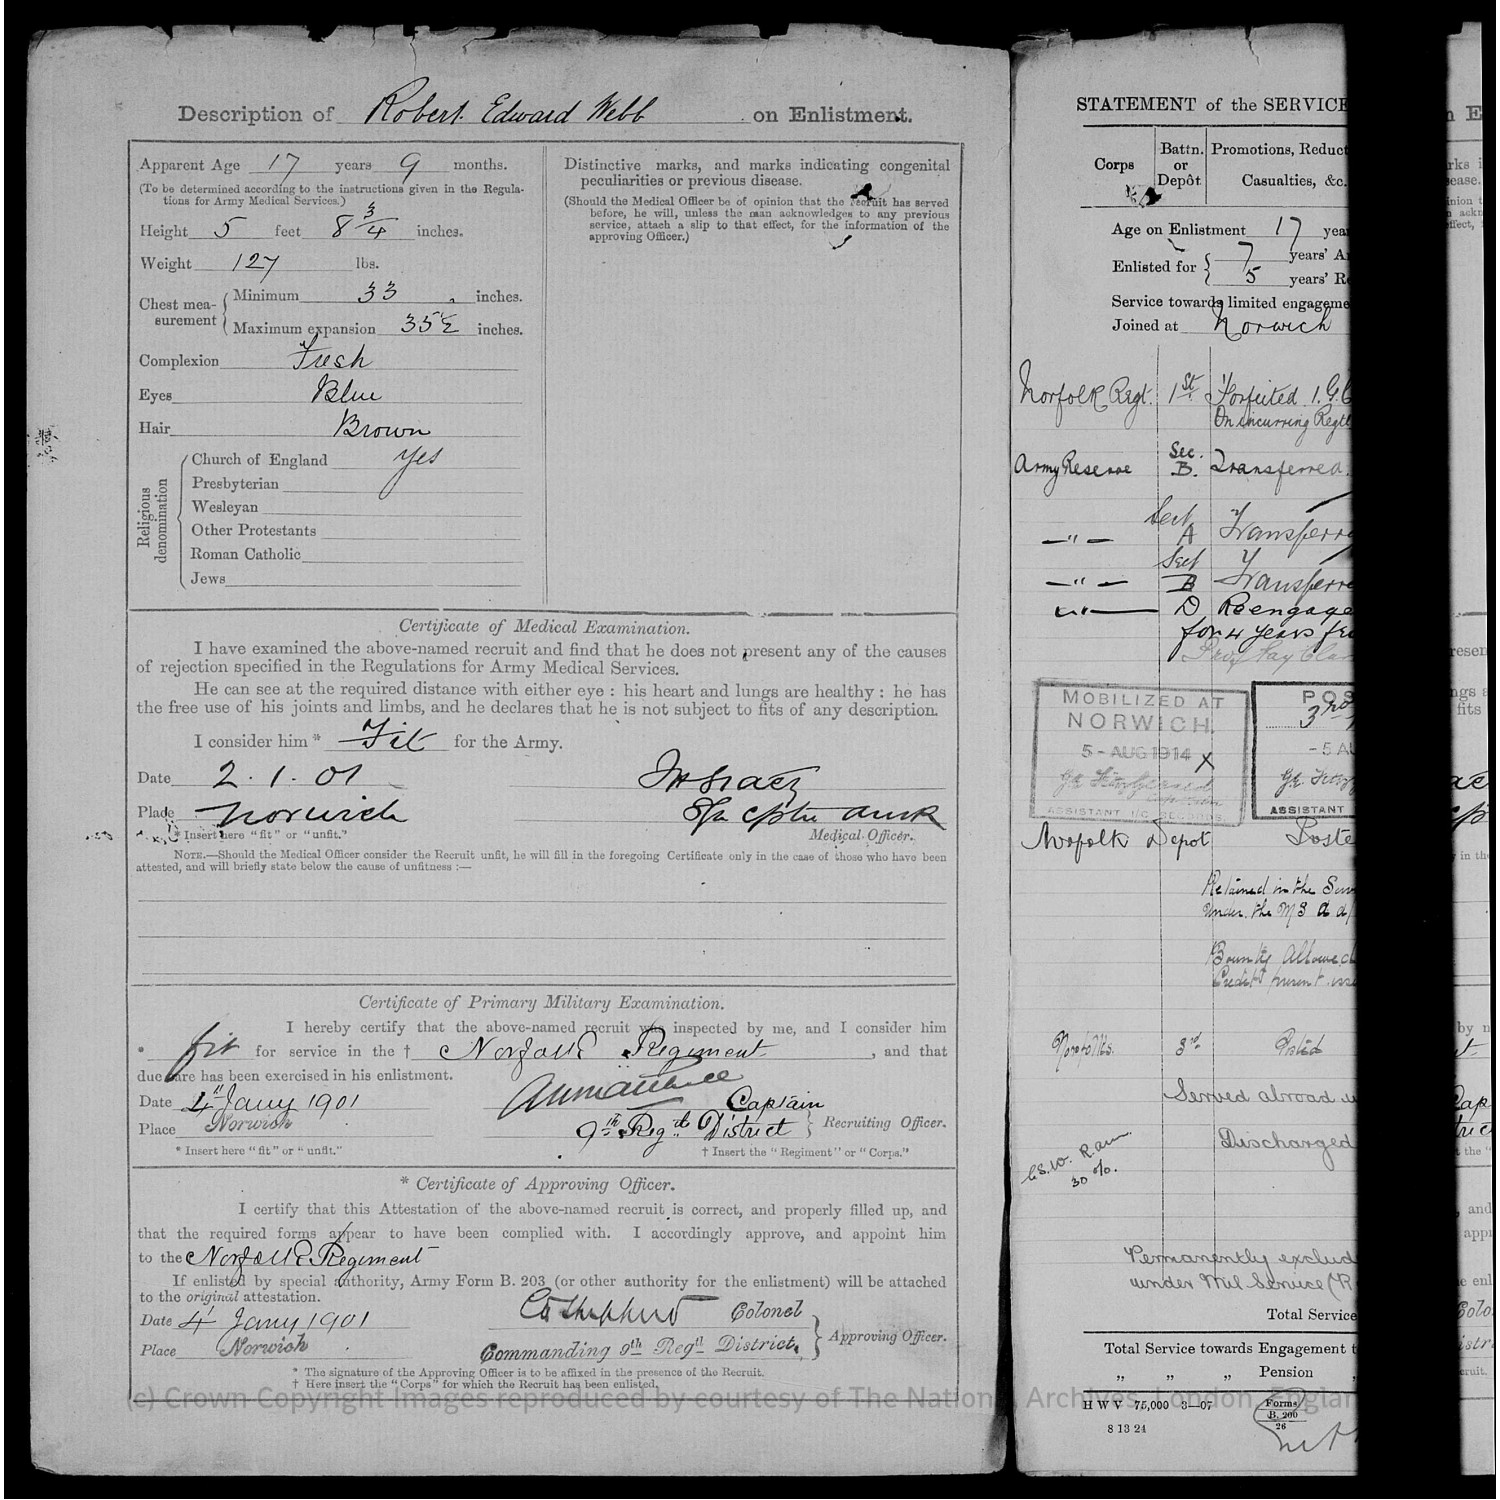 Description of Robert Edward Webb on Enlistment.
Apparent Age 17 years 9 months.
(To be determined according to the instructions given in the Regula-
tions for Army Medical Services.)
Height 5 feet 8 3/4 inches.
Weight 127 lbs.
Chest mea-
surement
Minimum 33 inches.
Maximum expansion 35½ inches.
Complexion Fresh
Eyes Blue
Hair Brown
Religious
denomination
Church of England Yes
Presbyterian
Wesleyan
Other Protestants
Roman Catholic
Jews
Distinctive marks, and marks indicating congenital
peculiarities or previous disease.
(Should the Medical Officer be of opinion that the recruit has served
before, he will, unless the man acknowledges to any previous
service, attach a slip to that effect, for the information of the
approving Officer.)
Certificate of Medical Examination.
I have examined the above-named recruit and find that he does not present any of the causes
of rejection specified in the Regulations for Army Medical Services.
He can see at the required distance with either eye : his heart and lungs are healthy : he has
the free use of his joints and limbs, and he declares that he is not subject to fits of any description.
I consider him * Fit for the Army.
Date 2.1.01
Place Norwich
* Insert here "fit" or "unfit."
Medical Officer.
NOTE.—Should the Medical Officer consider the Recruit unfit, he will fill in the foregoing Certificate only in the case of those who have been
attested, and will briefly state below the cause of unfitness :—
Certificate of Primary Military Examination.
I hereby certify that the above-named recruit was inspected by me, and I consider him
* fit for service in the † Norfolk Regiment, and that
due care has been exercised in his enlistment.
Date 4th Jany 1901 Captain
Place Norwich 9th Regtl District Recruiting Officer.
* Insert here "fit" or "unfit."
† Insert the "Regiment" or "Corps."
* Certificate of Approving Officer.
I certify that this Attestation of the above-named recruit is correct, and properly filled up, and
that the required forms appear to have been complied with. I accordingly approve, and appoint him
to the Norfolk Regiment
If enlisted by special authority, Army Form B. 203 (or other authority for the enlistment) will be attached
to the original attestation.
Date 4 Jany 1901 Colonel
Place Norwich Commanding 9th Regtl District. Approving Officer.
* The signature of the Approving Officer is to be affixed in the presence of the Recruit.
† Here insert the "Corps" for which the Recruit has been enlisted.
(c) Crown Copyright Images reproduced by courtesy of The National Archives, London, England
STATEMENT of the SERVICE
Corps
Battn.
or
Depôt
Promotions, Reduct
Casualties, &c.
Age on Enlistment 17 yea
Enlisted for
7 years' A
5 years' R
Service towards limited engageme
Joined at Norwich
Norfolk Regt. 1st Forfeited 1. G.C
On incurring Regtl
Army Reserve Sec. B. Transferred
—"— Sect A Transferre
—"— Sect B Transferre
—"— D Reengage
for 4 years
MOBILIZED AT
NORWICH.
5 - AUG 1914
ASSISTANT I/C RECORDS.
POS
- 5 AU
ASSISTANT
Norfolk Depot Poste
Retained in the Serv
under the M S A
Bounty Allowed
Credit
Norfolks. 3rd Posted
Served abroad
Discharged
G.S.W. R. arm.
30 %.
Permanently exclud
under Mil Service (R
Total Service
Total Service towards Engagement t
„ „ „ Pension „
H W V 75,000 3—07
8 13 24
Forms
B. 200
26